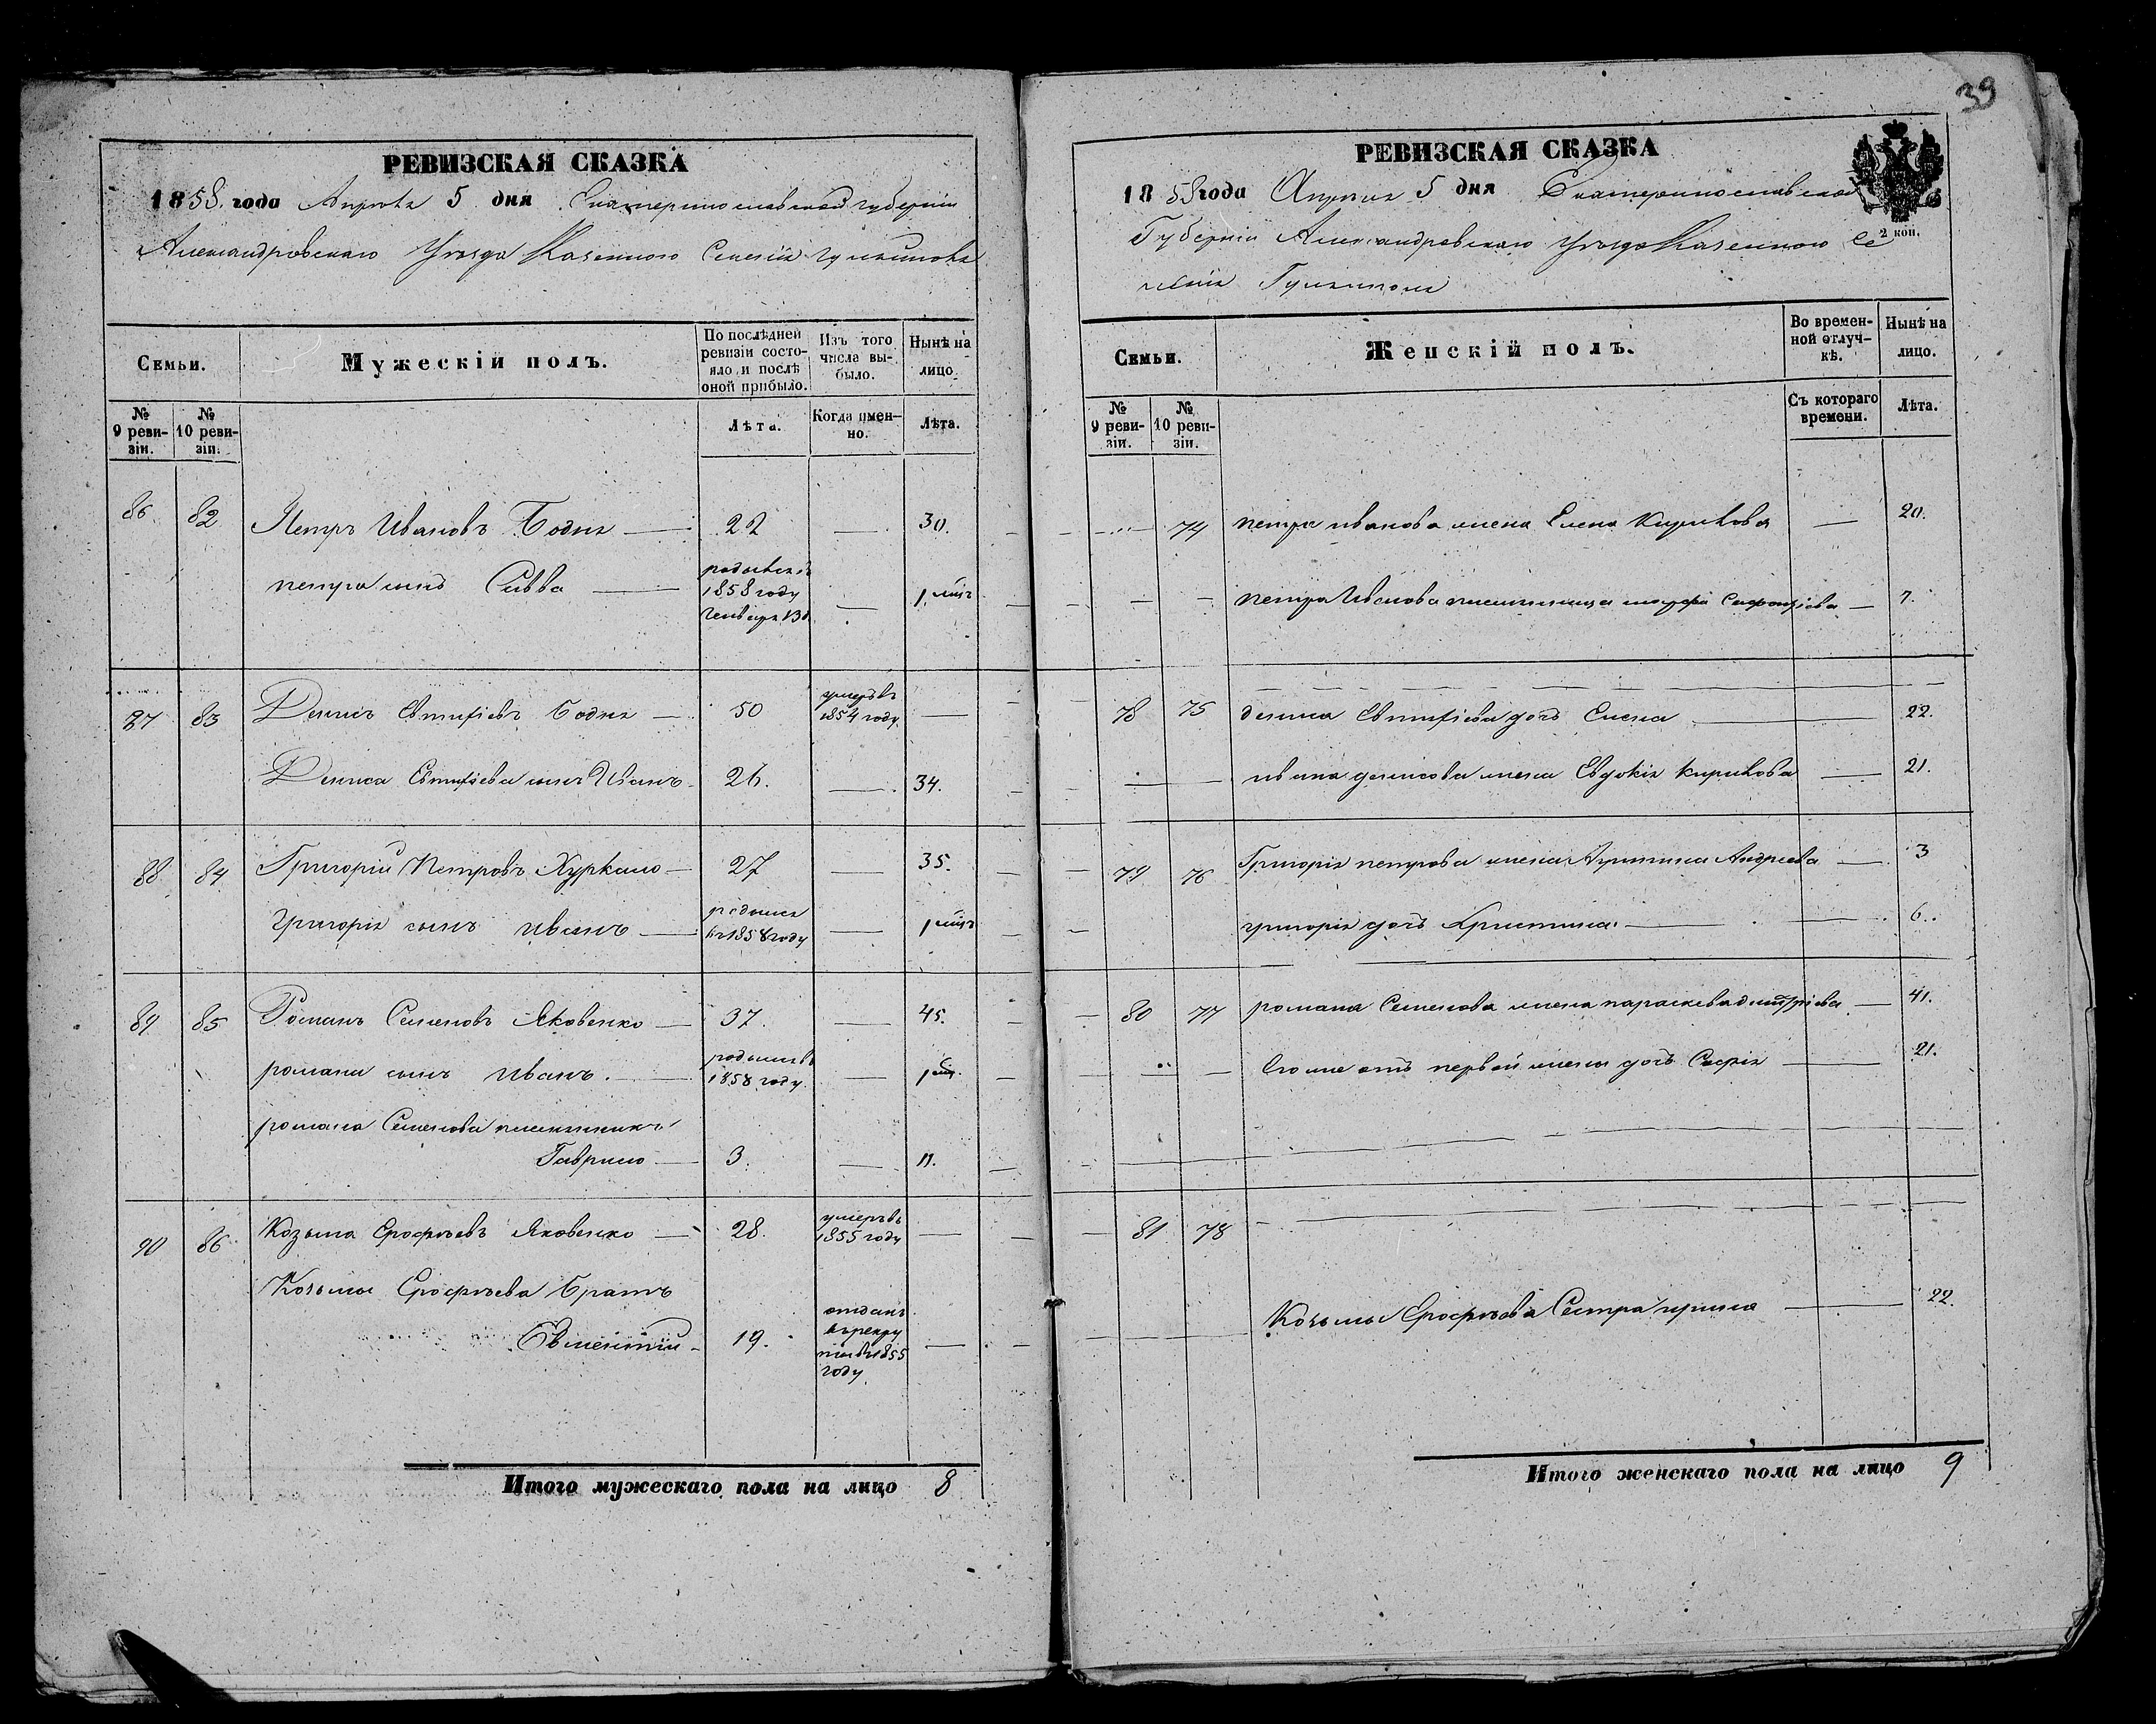 39
РЕВИЗСКАЯ СКАЗКА
1858. года Апрѣля 5 дня Екатеринославской губерніи
Александровскаго Уѣзда Казеннаго Селенія
Семьи.
Мужескій полъ.
По послѣдней ревизіи состояло и послѣ оной прибыло.
Изъ того числа выбыло.
Нынѣ на лицо.
№ 9 ревизіи.
№ 10 ревизіи.
Лѣта.
Когда именно.
Лѣта.
86 82 Петръ Ивановъ Бодня — 22 — 30.
петра сынъ Савва — 1858 году Генваря — 1 мѣц
87 83 Денисъ Евтифіевъ Бодня — 50 умеръ въ 1854 году —
Дениса Евтифіева сынъ Иванъ 26. — 34.
88 84 Григорій Петровъ — 27 — 35.
Григорія сынъ Иванъ — родился въ 1858 году — 1 мѣц
89 85 Романъ Семеновъ Яковенко — 37. — 45.
романа сынъ Иванъ. — родился въ 1858 году. — 1 мц.
романа Семенова племянникъ
Гаврило — 3. — 11.
90 86 Козьма Ерофѣевъ Яковенко — 28. умеръ въ 1855 году —
Козьмы Ерофѣева Братъ
19. отданъ въ рекруты въ 1855 году —
Итого мужескаго пола на лицо 8
РЕВИЗСКАЯ СКАЗКА
1858 года Апрѣля 5 дня Екатеринославской
2 коп.
Губерніи Александровскаго Уѣзда Казеннаго Се
ленія
Семьи.
Женскій полъ.
Во временной отлучкѣ.
Нынѣ на лицо.
№ 9 ревизіи.
№ 10 ревизіи.
Съ котораго времени.
Лѣта.
— 74 петра иванова жена Елена Кирикова — 20.
— — петра Иванова племянница — 7.
78 75 дениса Евтифіева дочь Елена — 22.
— — ивана денисова жена Евдокія Кирикова — 21.
79 76 Григорія петрова жена Андреева — 3
григорія дочь Христина. — 6.
80 77 романа Семенова жена параскева дмитріева — 41.
— Его же отъ первой жены дочь Софія — 21.
81 78
Козьмы Ерофѣева Сестра ирина — 22.
Итого женскаго пола на лицо 9